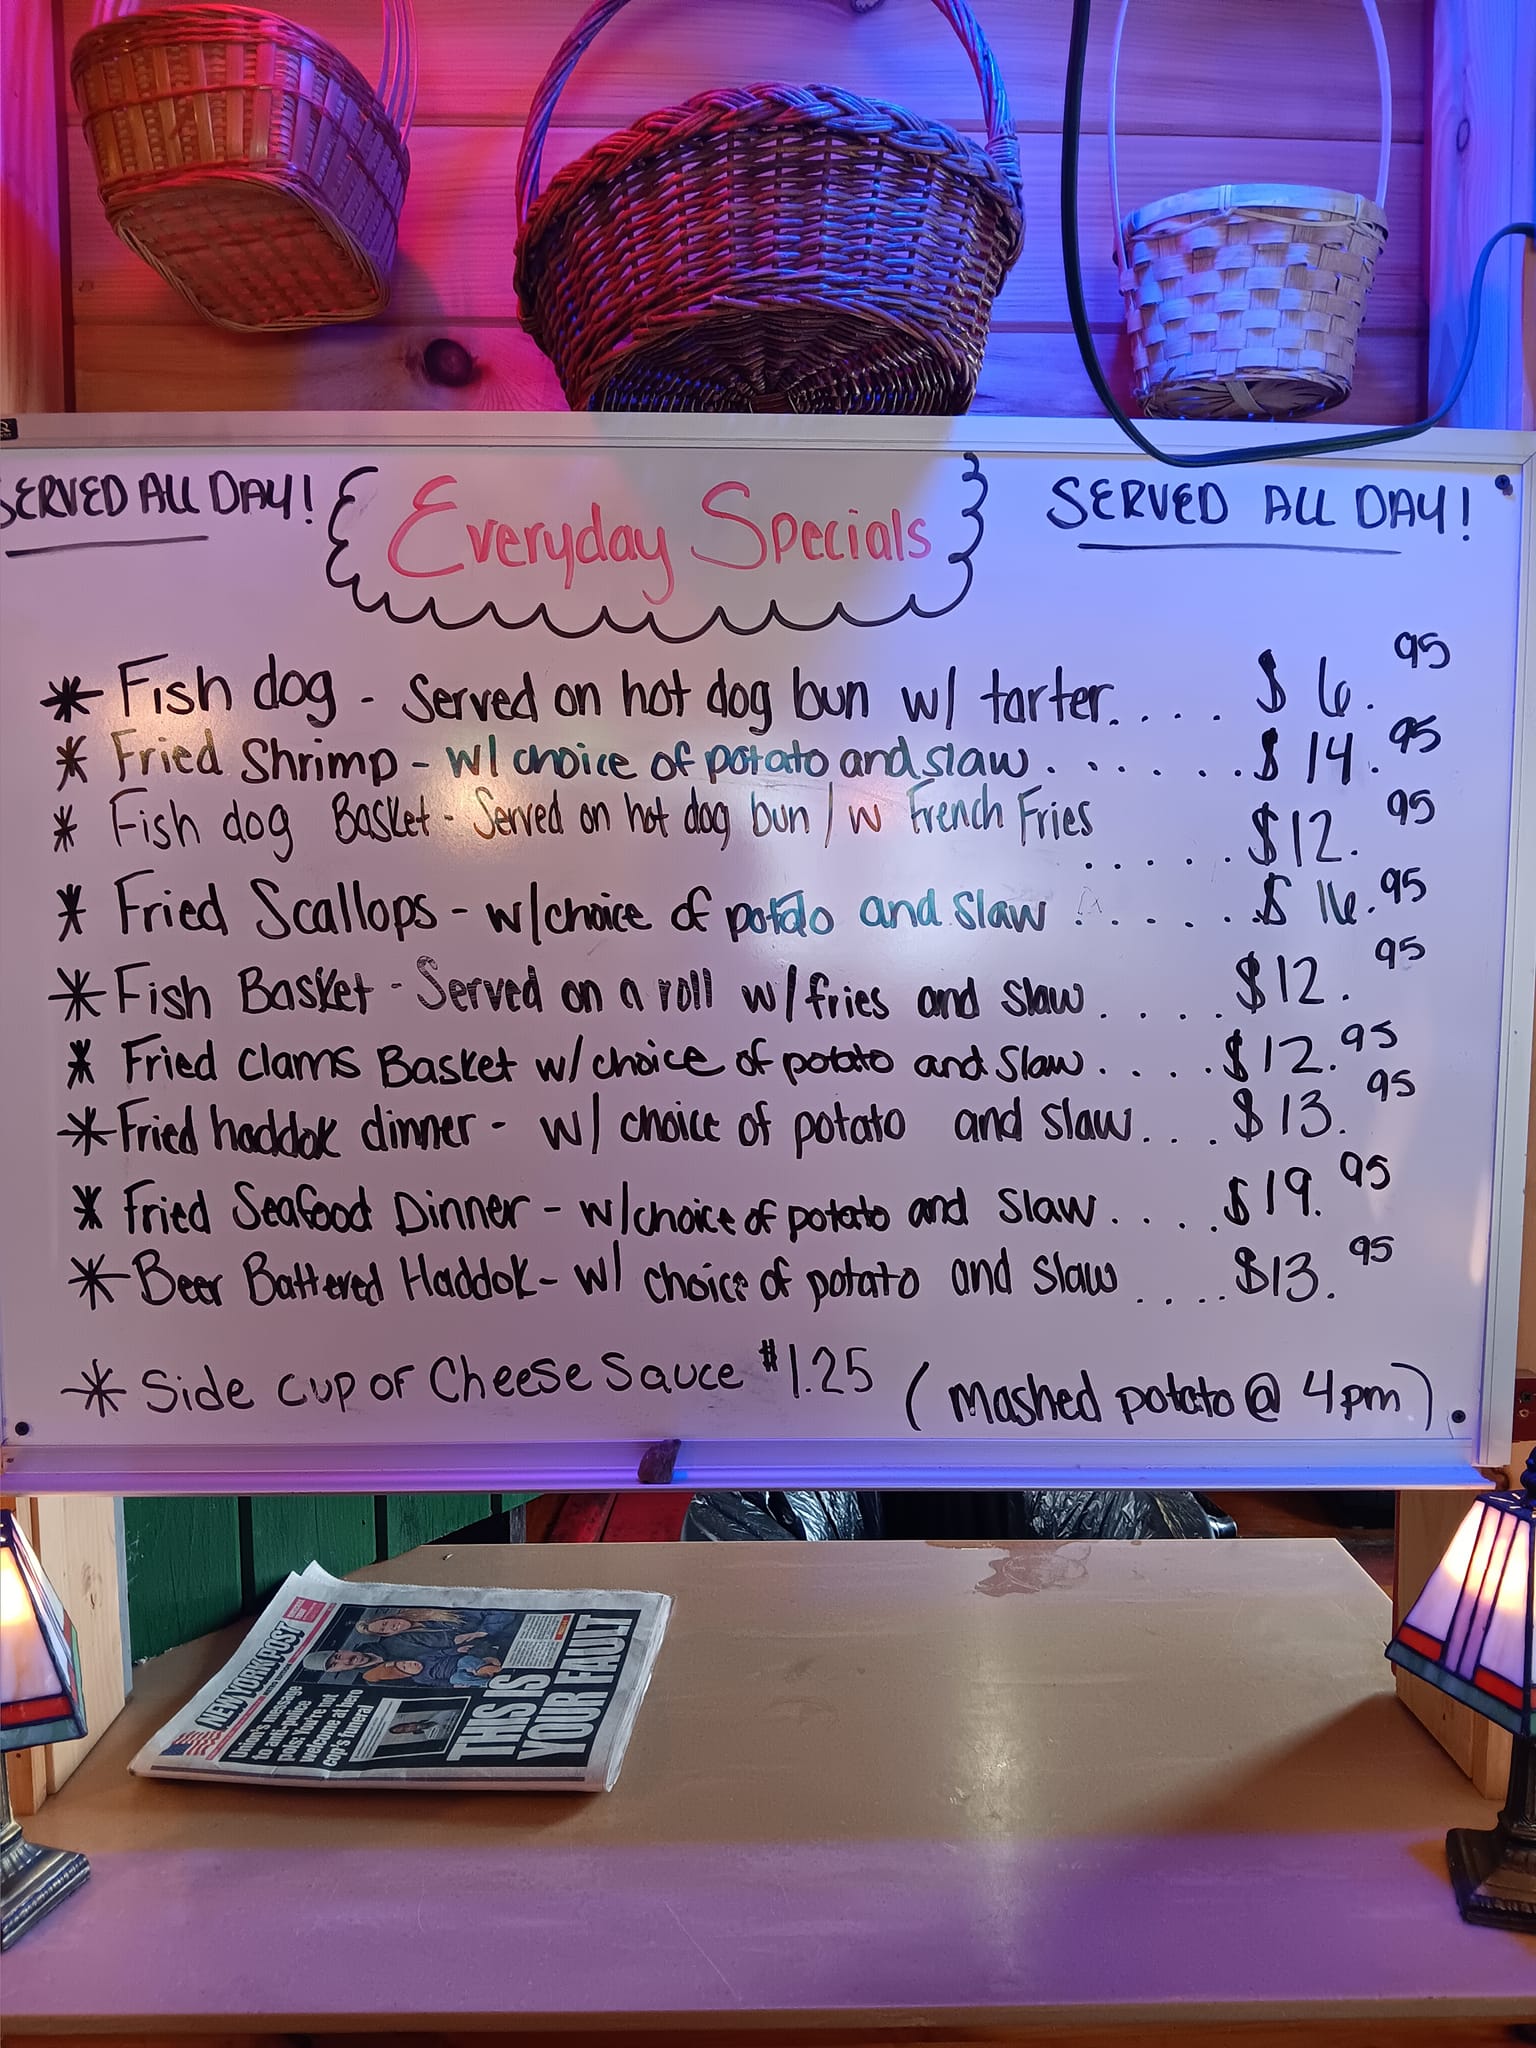 SERVED ALL DAY!
Everyday Specials
SERVED ALL DAY!
* Fish dog - Served on hot dog bun w/ tarter.... $6.95
* Fried Shrimp - w/ choice of potato and slaw.......$14.95
* Fish dog Basket - Served on hot dog bun / w French Fries
.....$12.95
* Fried Scallops - w/choice of potato and Slaw .....$16.95
* Fish Basket - Served on a roll w/fries and Slaw....$12.95
* Fried Clams Basket w/choice of potato and Slaw....$12.95
* Fried haddok dinner - w/ choice of potato and Slaw...$13.95
* Fried Seafood Dinner - w/choice of potato and Slaw....$19.95
* Beer Battered Haddok - w/ choice of potato and Slaw ....$13.95
* Side cup of Cheese Sauce $1.25 (Mashed potato @ 4pm)
NEW YORK POST
Union's message
to anti-police
pols: You're not
welcome at hero
cop's funeral
THIS IS
YOUR FAULT